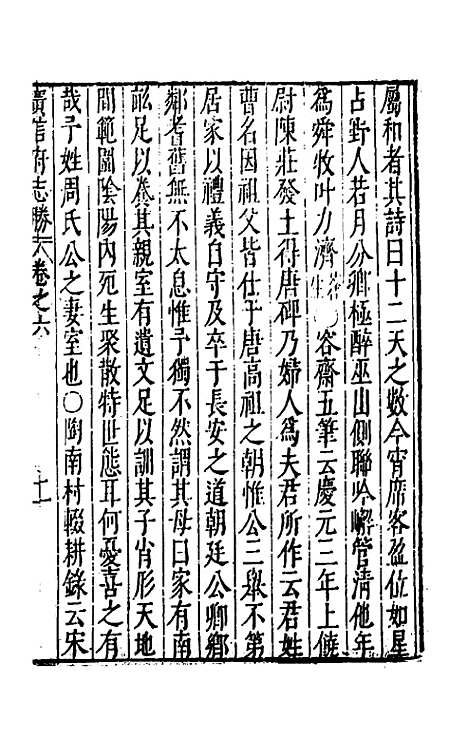 屬和者其詩曰十二天之數今宵席客盈位如星
占野人若月分卿極醉巫山側聯吟嶰管清他年
為舜牧叶力濟蒼生○容齋五筆云慶元三年上饒
尉陳莊發土得唐碑乃婦人為夫君所作云君姓
曹名因祖父皆仕于唐高祖之朝惟公三舉不第
居家以禮義自守及卒于長安之道朝廷公卿鄉
鄰耆舊無不太息惟予獨不然謂其母曰家有南
畝足以養其親室有遺文足以訓其子肖形天地
間範圍陰陽內死生聚散特世態耳何憂喜之有
哉予姓周氏公之妻室也○陶南村輟耕錄云宋
廣信府志勝 卷之六 十一